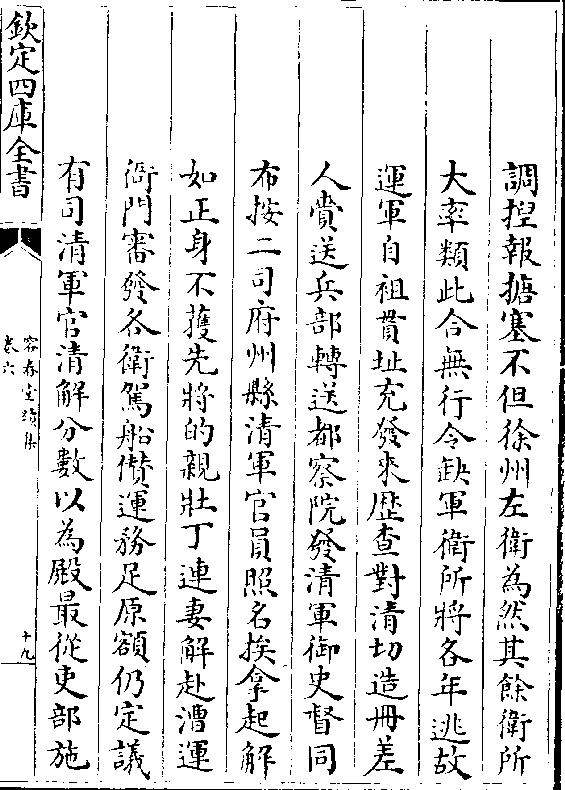 調捏報搪塞不但徐州左衛為然其餘衛所
大率類此合無行令缺軍衛所將各年逃故
運軍自祖貫址充發來歴查對清切造冊差
人賫送兵部轉送都察院發清軍御史督同
布按二司府州縣清軍官員照名挨拿起解
如正身不獲先將的親壯丁連妻解赴漕運
衙門審發各衛駕船儹運務足原額仍定議
有司清軍官清解分數以為殿最從吏部施
欽定四庫全書
容春堂續集
卷六
十九